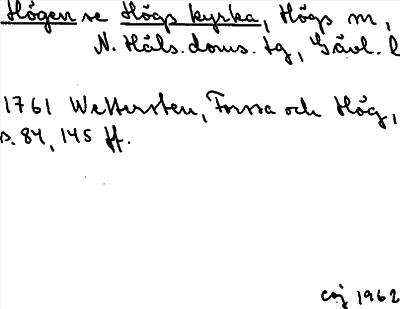 Högen se Högs kyrka, Högs sn,
N. Häls. doms. tg, Gävl. l
1761 Wettersten, Forssa och Hög,
s. 84, 145 ff.
1962